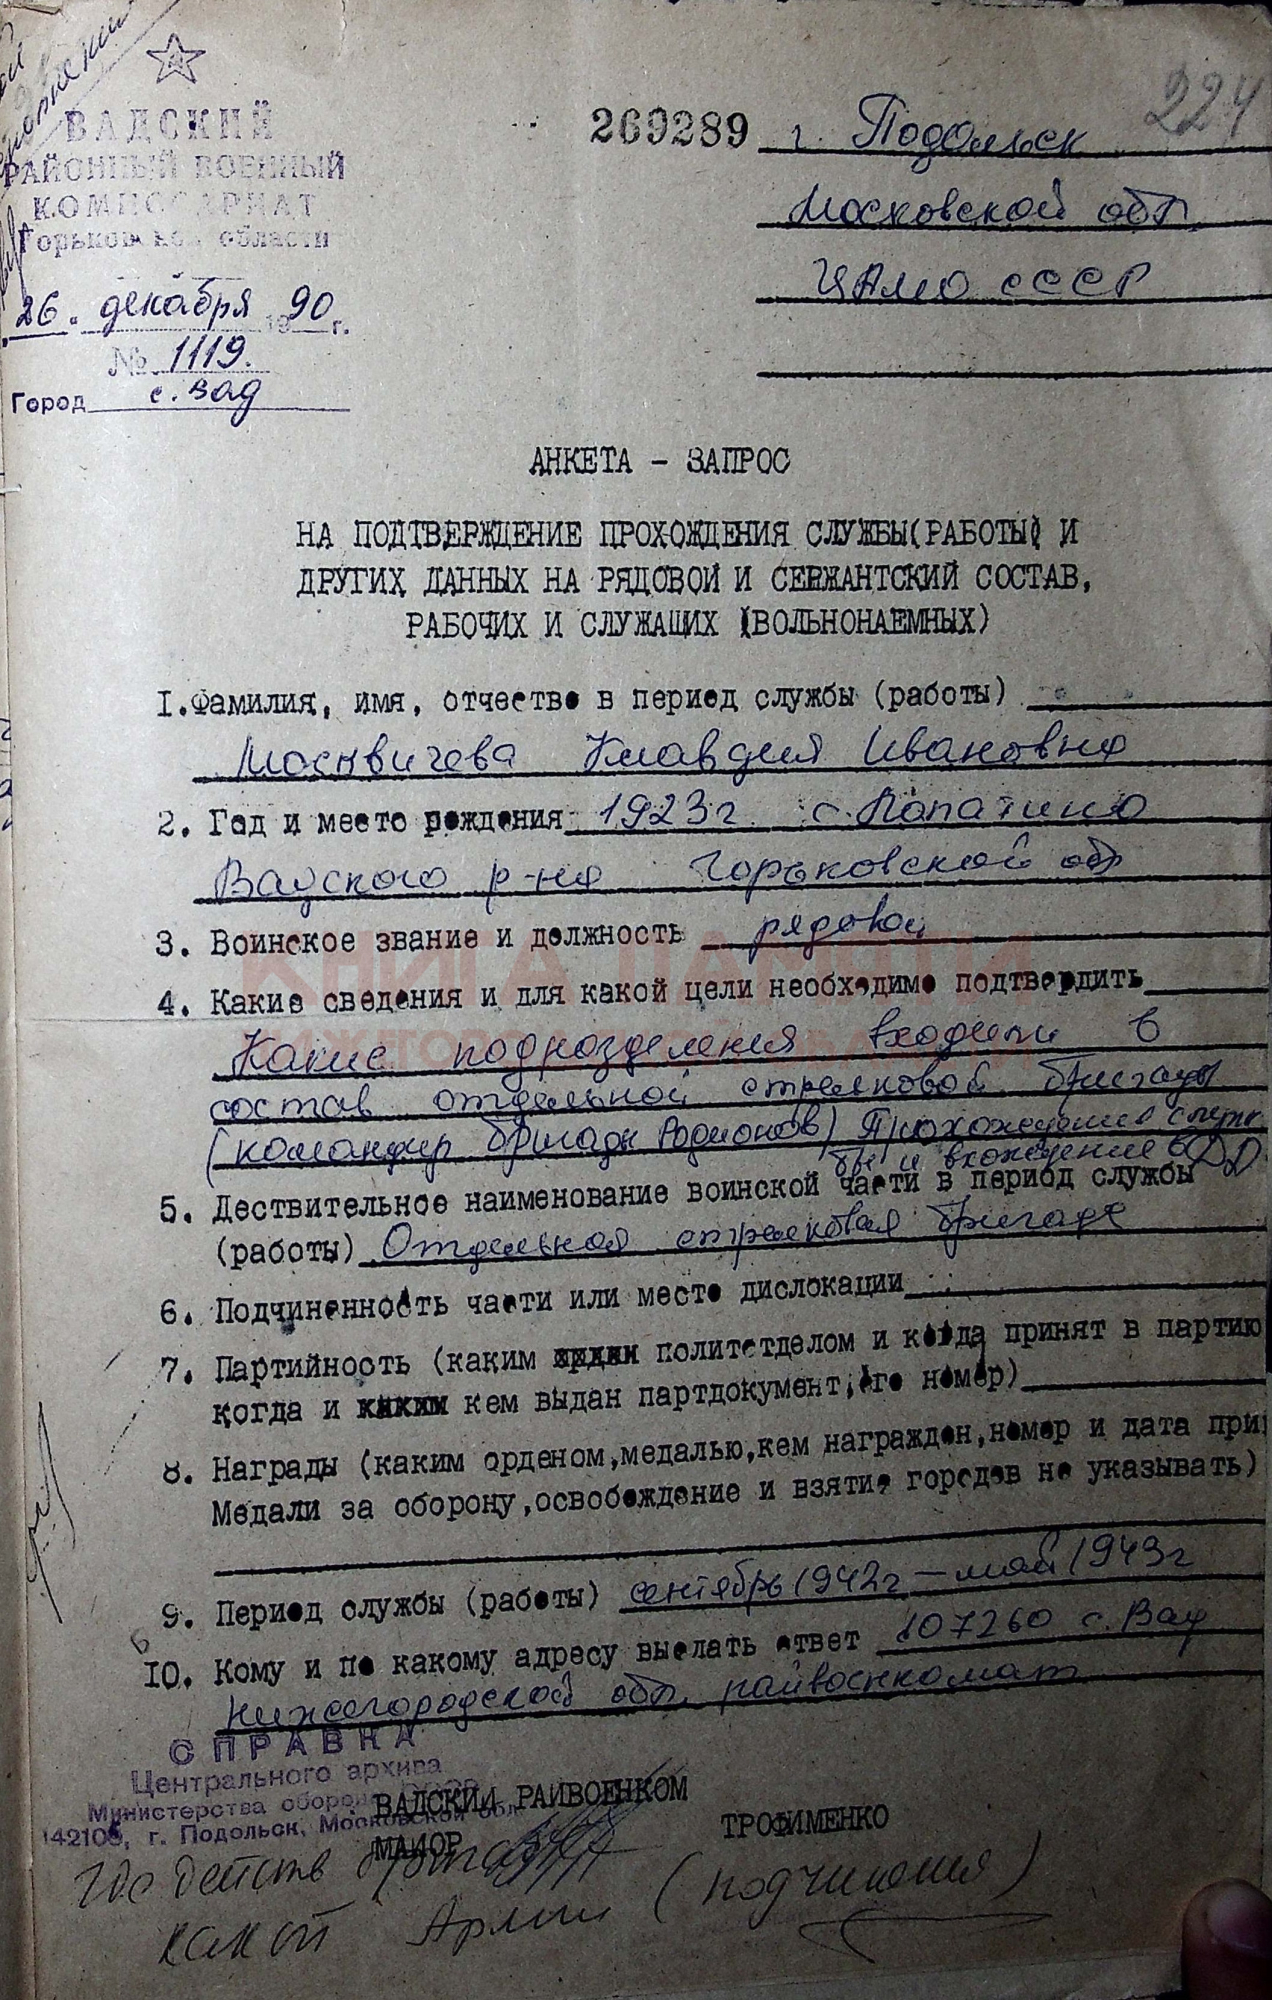 224
ВАДСКИЙ
РАЙОННЫЙ ВОЕННЫЙ
КОМИССАРИАТ
Горьковской области
26. декабря 1990 г.
№ 1119.
Город с. Вад
269289
г. Подольск
Московской обл.
ЦАМО СССР
АНКЕТА - ЗАПРОС
НА ПОДТВЕРЖДЕНИЕ ПРОХОЖДЕНИЯ СЛУЖБЫ(РАБОТЫ) И
ДРУГИХ ДАННЫХ НА РЯДОВОЙ И СЕРЖАНТСКИЙ СОСТАВ,
РАБОЧИХ И СЛУЖАЩИХ (ВОЛЬНОНАЕМНЫХ)
1.Фамилия, имя, отчество в период службы (работы)
Москвичева Клавдия Ивановна
2. Год и место рождения 1923г. с. Лопатино
Вадского р-на Горьковской обл
3. Воинское звание и должность рядовой
КНИГА ПАМЯТИ
4. Какие сведения и для какой цели необходимо подтвердить
НИЖЕГОРОДСКОЙ ОБЛАСТИ
Какие подразделения входили в
состав отдельной стрелковой бригады
(командир бригады Родионов) Прохождение служ
бы и вхождение в ДД
5. Дествительное наименование воинской части в период службы
(работы) Отдельная стрелковая бригада
6. Подчиненность части или место дислокации
7. Партийность (каким политотделом и когда принят в партию
когда и кем выдан партдокумент, его номер)
8. Награды (каким орденом,медалью,кем награжден,номер и дата при
Медали за оборону,освобождение и взятие городов не указывать)
9. Период службы (работы) сентябрь 1942г – май 1943г
10. Кому и по какому адресу выслать ответ 607260 с. Вад
Нижегородской обл. райвоенкомат
СПРАВКА
Центрального архива
Министерства обороны СССР
142105, г. Подольск, Московской обл.
ВАДСКИЙ РАЙВОЕНКОМ
МАЙОР
ТРОФИМЕНКО
Где действ бригада
какой Армии (подчинения)